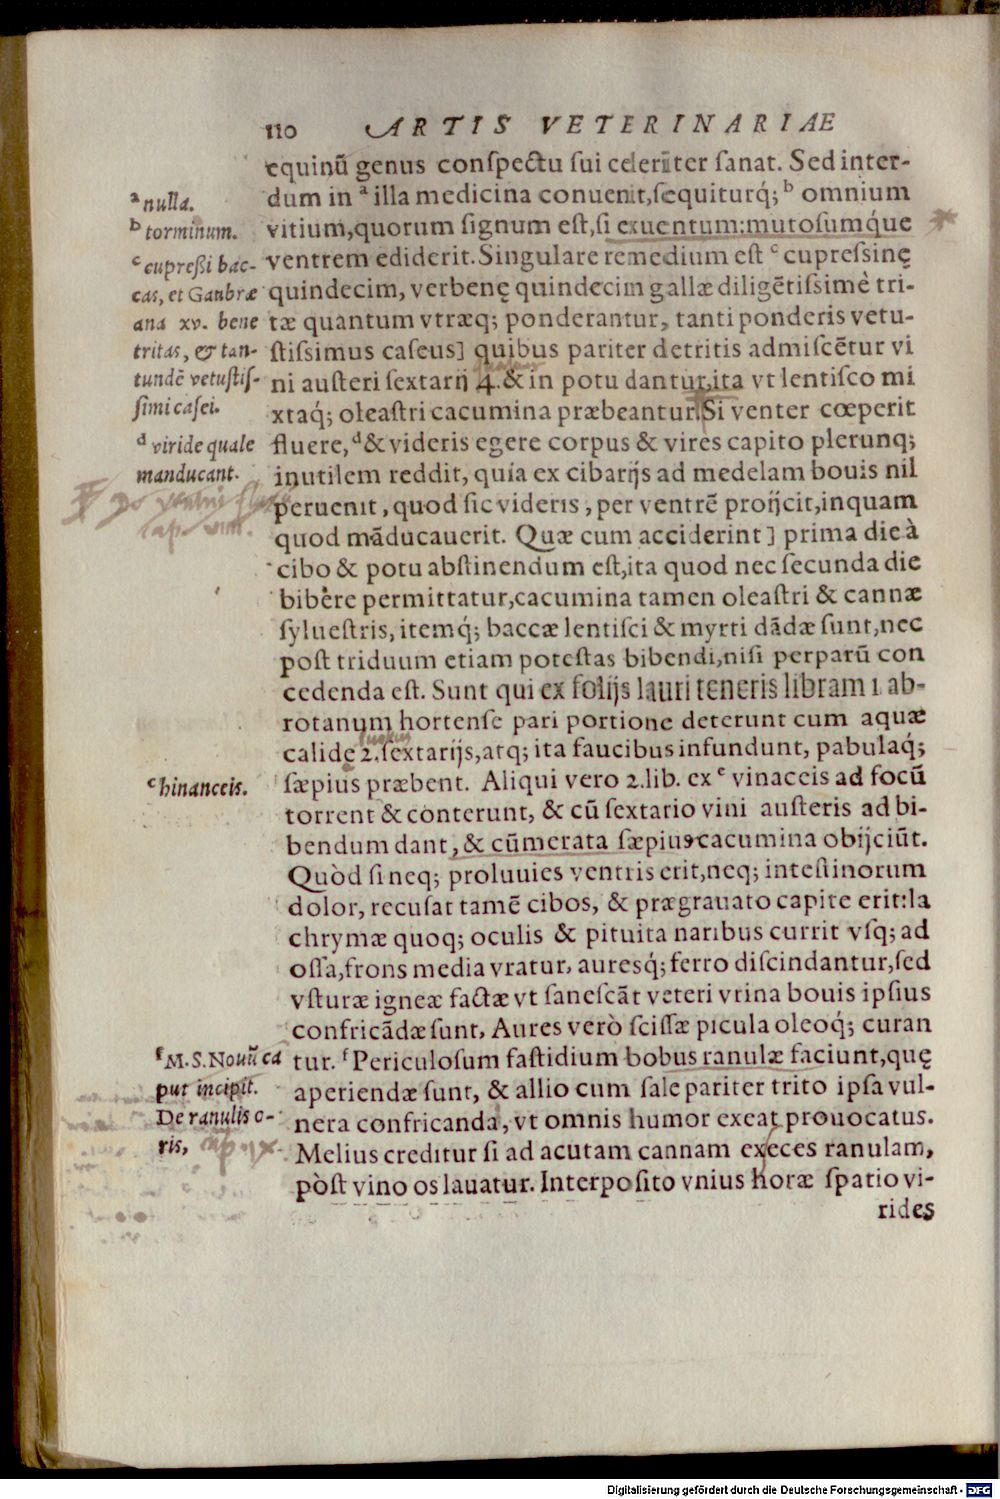 110 ARTIS VETERINARIAE
equinũ genus conſpectu ſui celeriter ſanat. Sed inter-
dum in ᵃ illa medicina conuenit,ſequiturq́; ᵇ omnium
vitium,quorum ſignum eſt,ſi exuentum:mutoſumq́ue
ventrem ediderit. Singulare remedium eſt ᶜ cupreſsinę
quindecim, verbenę quindecim gallæ diligẽtiſsimè tri-
tæ quantum vtræq; ponderantur, tanti ponderis vetu-
ſtiſsimus caſeus] quibus pariter detritis admiſcẽtur vi
ni auſteri ſextarij 4. & in potu dantur,ita vt lentiſco mi
xtaq́; oleaſtri cacumina præbeantur.Si venter cœperit
fluere, ᵈ & videris egere corpus & vires capito plerunq;
inutilem reddit, quia ex cibarijs ad medelam bouis nil
peruenit, quod ſic videris, per ventrẽ proijcit,inquam
quod mãducauerit. Quæ cum acciderint] prima die à
cibo & potu abſtinendum eſt,ita quod nec ſecunda die
bibere permittatur,cacumina tamen oleaſtri & cannæ
ſylueſtris, itemq́; baccæ lentiſci & myrti dãdæ ſunt,nec
poſt triduum etiam poteſtas bibendi,niſi perparũ con
cedenda eſt. Sunt qui ex folijs lauri teneris libram 1. ab-
rotanum hortenſe pari portione deterunt cum aquæ
calidę 2. ſextarijs,atq; ita faucibus infundunt, pabulaq́;
ſæpius præbent. Aliqui vero 2. lib. ex ᵉ vinaceis ad focũ
torrent & conterunt, & cũ ſextario vini auſteris ad bi-
bendum dant, & cũmerata ſæpius cacumina obijciũt.
Quòd ſi neq; proluuies ventris erit,neq; inteſtinorum
dolor, recuſat tamẽ cibos, & prægrauato capite erit:la
chrymæ quoq; oculis & pituita naribus currit vſq; ad
oſſa,frons media vratur, auresq́; ferro diſcindantur,ſed
vſturæ igneæ factæ vt ſaneſcãt veteri vrina bouis ipſius
confricãdæ ſunt, Aures verò ſciſſæ picula oleoq́; curan
tur. ᶠ Periculoſum faſtidium bobus ranulæ faciunt,quę
aperiendæ ſunt, & allio cum ſale pariter trito ipſa vul-
nera confricanda, vt omnis humor exeat prouocatus.
Melius creditur ſi ad acutam cannam execes ranulam,
pòſt vino os lauatur. Interpoſito vnius horæ ſpatio vi-
rides
ᵃ nulla.
ᵇ torminum.
ᶜ cupreßi bac-
cas, et Gaubræ
ana xv. bene
tritas, & tan-
tundẽ vetuſtiſ-
ſimi caſei.
ᵈ viride quale
manducant.
ᵉ hinanceis.
ᶠ M.S. Nouũ ca
put incipit.
De ranulis o-
ris,
Digitalisierung gefördert durch die Deutsche Forschungsgemeinschaft - DFG